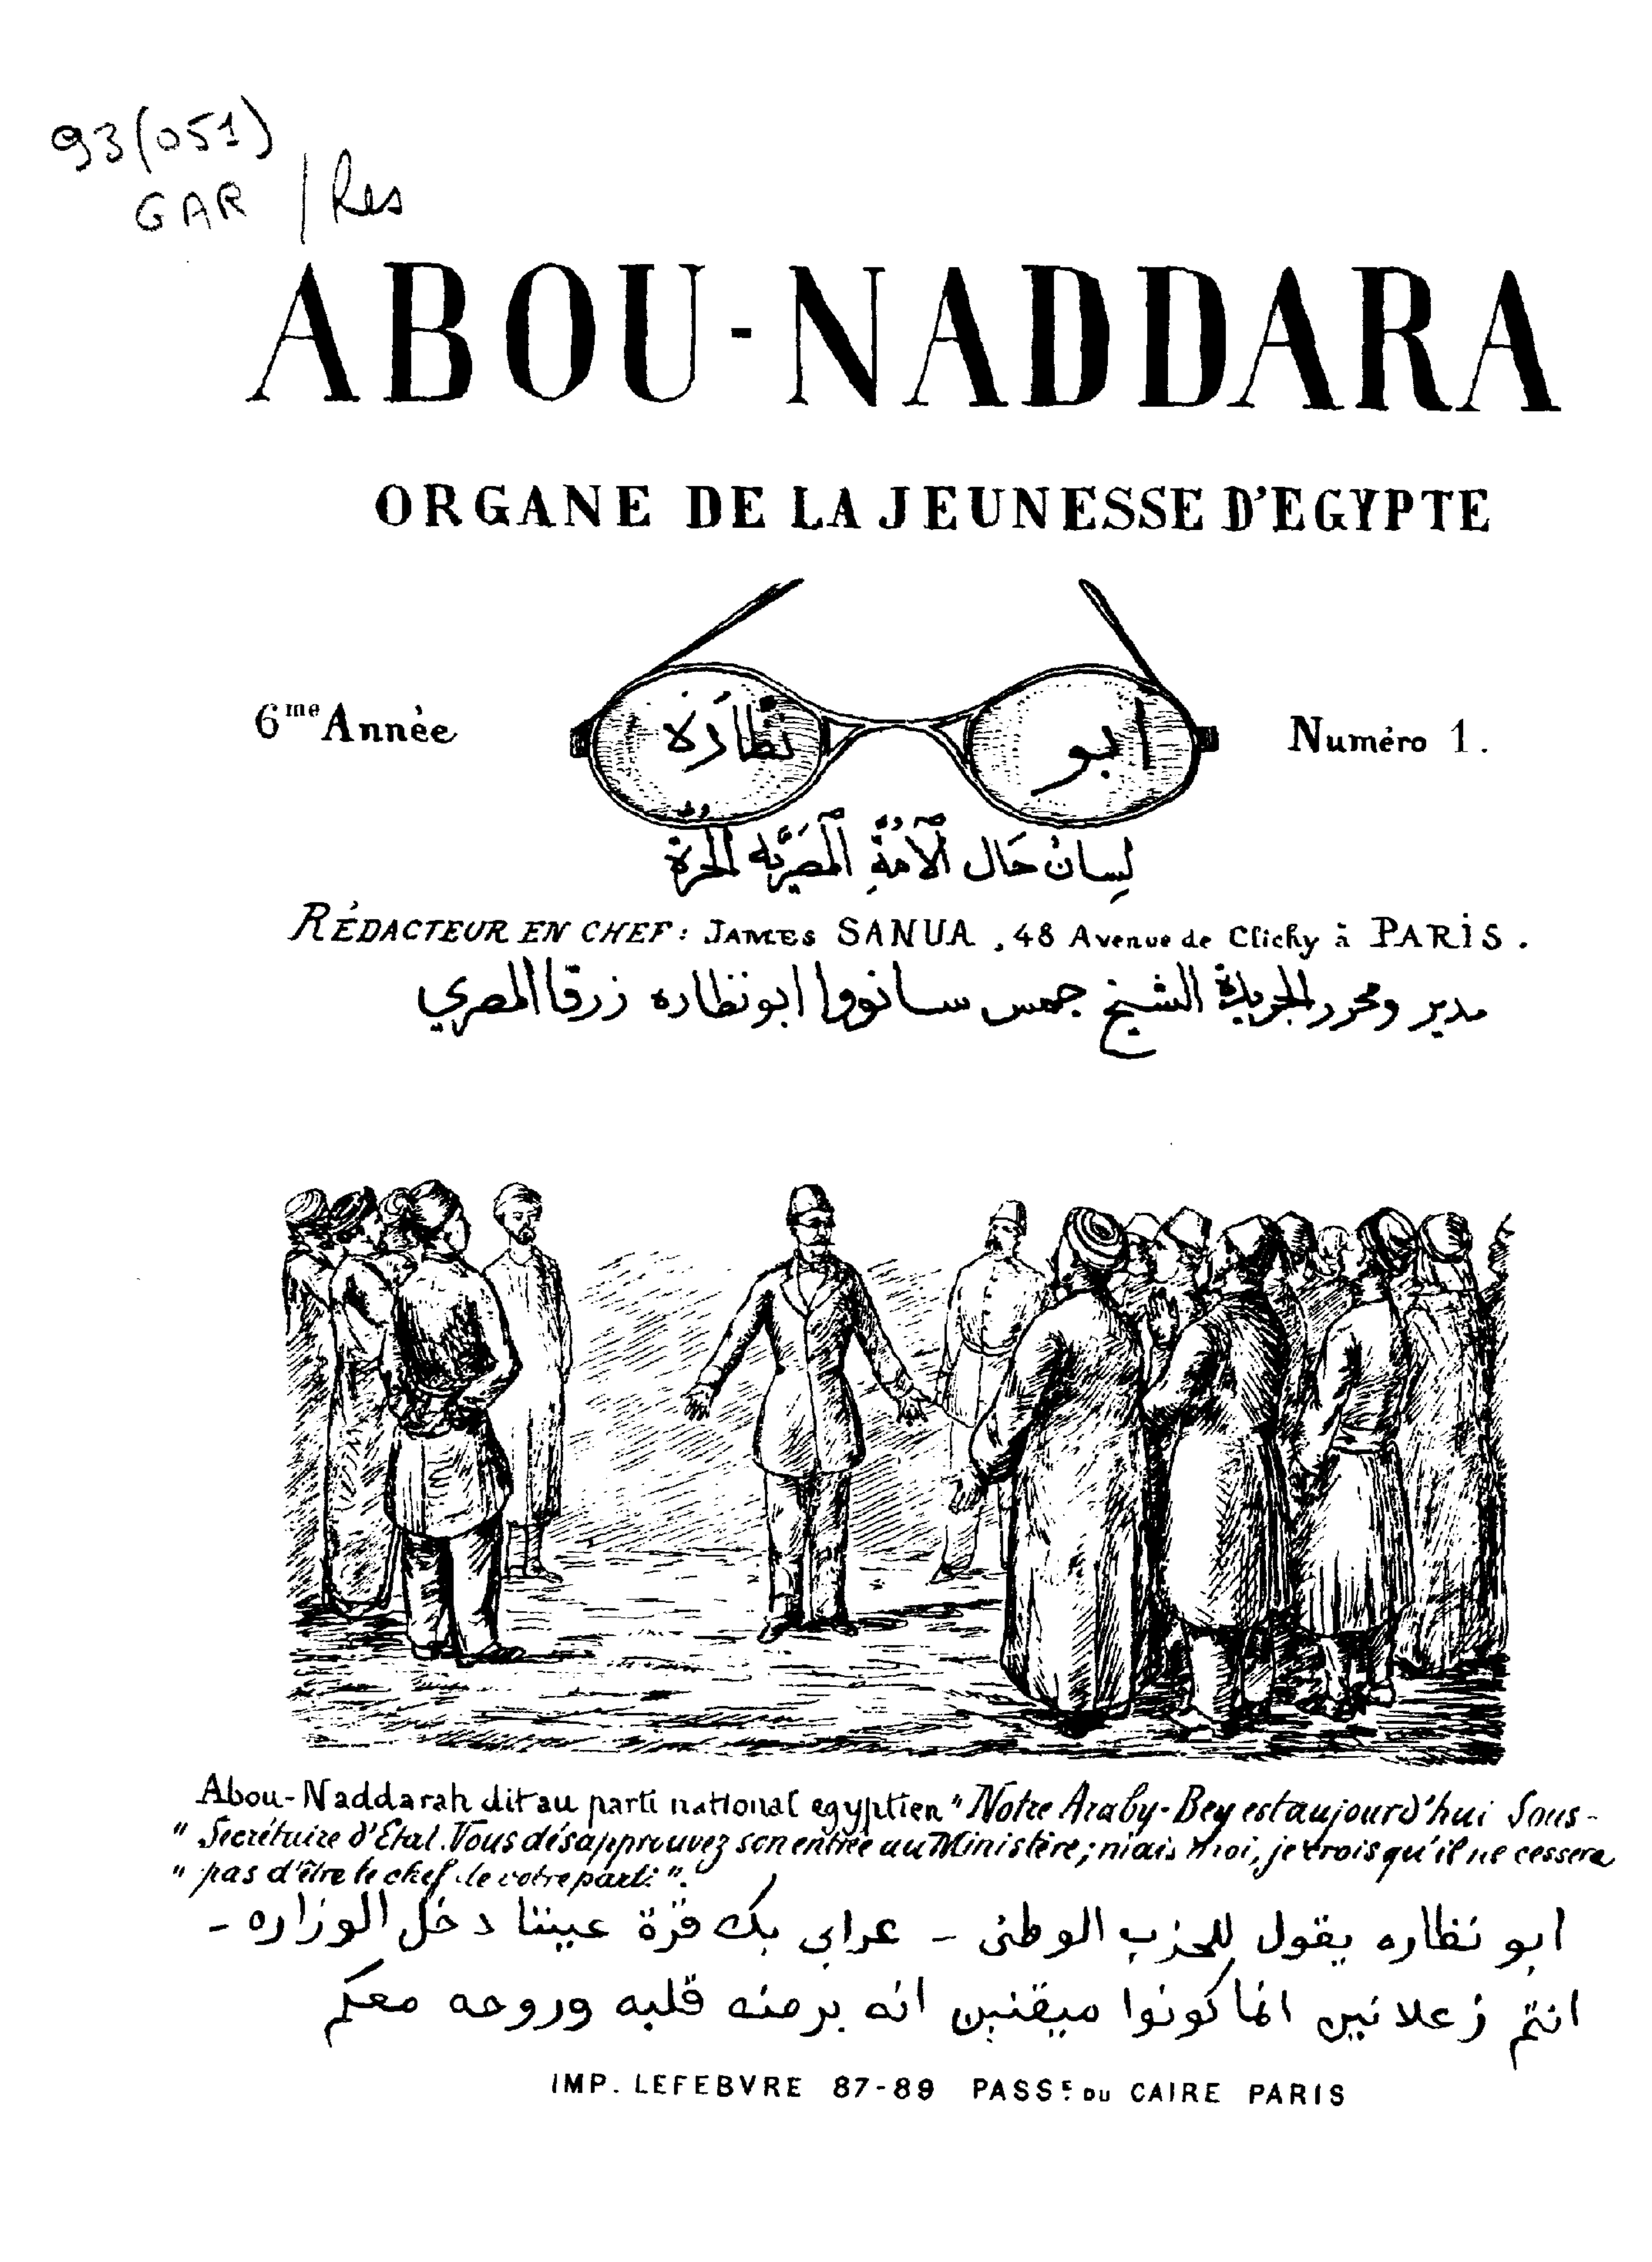 93(051)
GAR / Res
ABOU-NADDARA
ORGANE DE LA JEUNESSE D'EGYPTE
6me Année
ابو نظارة
Numéro 1.
لسان حال الأمة المصرية الحرة
RÉDACTEUR EN CHEF: JAMES SANUA, 48 Avenue de Clichy à PARIS.
مدير ومحرر الجريدة الشيخ جمس سانووا ابونظاره زرقا المصري
Abou-Naddarah dit au parti national egyptien "Notre Araby-Bey est aujourd'hui Sous-
" Secrétaire d'Etat. Vous désapprouvez son entrée au Ministère; mais moi, je crois qu'il ne cessera
" pas d'être le chef de votre parti".
ابو نظاره يقول للحزب الوطنى - عرابى بك قرة عيننا دخل الوزاره -
انتم زعلانين انما كونوا ميقنين انه برمنه قلبه وروحه معكم
IMP. LEFEBVRE 87-89 PASSE DU CAIRE PARIS